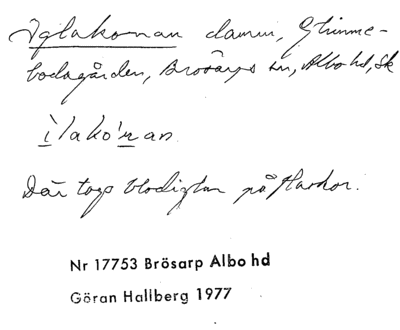 Iglakornan damm, Grimme-
bodagården, Brösarps sn, Albo hd, Sk
ìlako'ran
Där togs blodiglar på
Nr 17753 Brösarp Albo hd
Göran Hallberg 1977